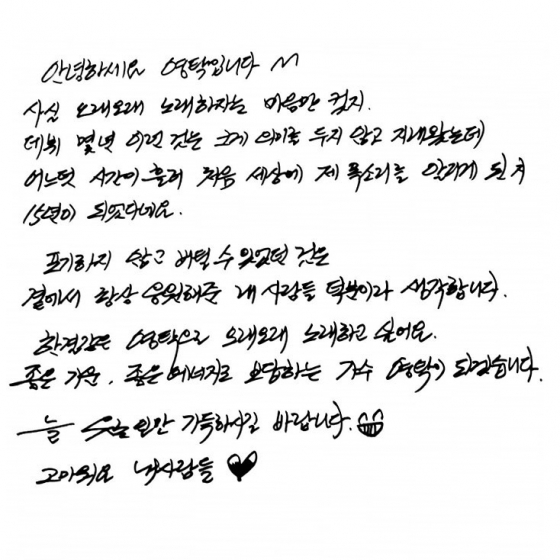 안녕하세요 영탁입니다 ^^
사실 오래오래 노래하자는 마음만 컸지.
데뷔 몇년 이런 것은 크게 의미를 두지 않고 지내왔는데
어느덧 시간이 흘러 처음 세상에 제 목소리를 알리게 된 지
15년이 되었다네요.
포기하지 않고 버틸 수 있었던 것은
곁에서 항상 응원해준 내 사람들 덕분이라 생각합니다.
한결같은 영탁으로 오래오래 노래하고 싶어요.
좋은 기운, 좋은 에너지로 보답하는 가수 영탁이 되겠습니다.
늘 웃을 일만 가득하시길 바랍니다.
고마워요 내사람들